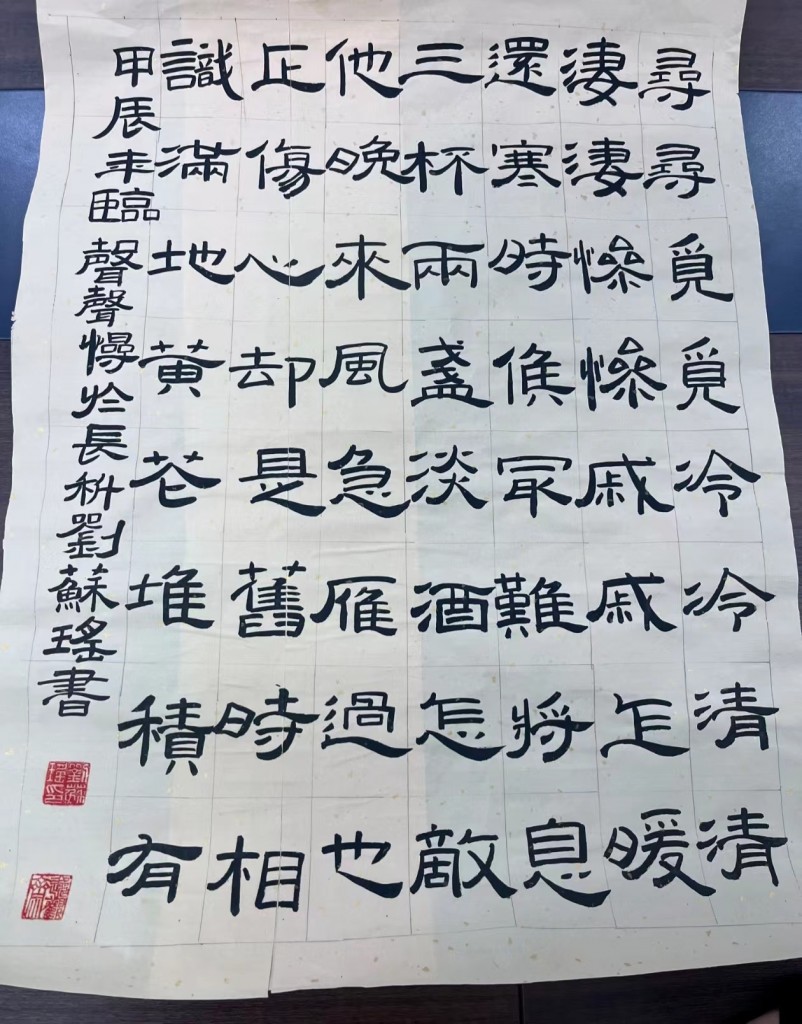 尋尋覓覓冷冷清清
淒淒慘慘戚戚乍暖
還寒時候冣難將息
三杯兩盞淡酒怎敵
他晚來風急雁過也
正傷心却是舊時相
識滿地黃花堆積有
甲辰年臨聲聲慢於長科劉蘇瑤書
劉蘇瑤印